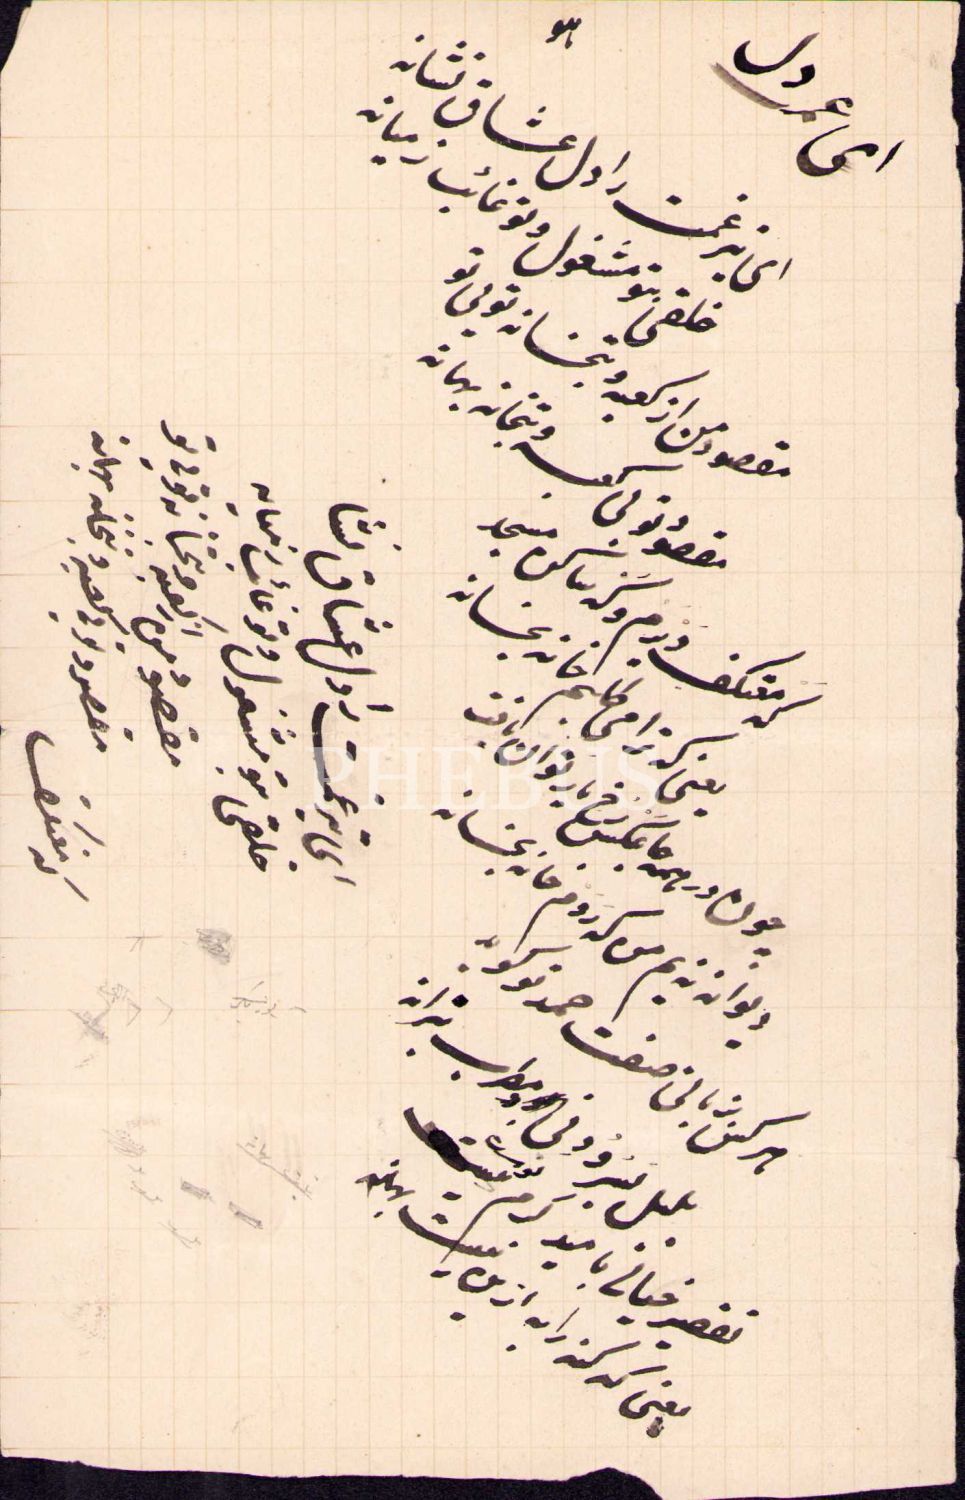 هو
ای تیر غمت را دل عشاق نشانه
خلقی بتو مشغول و تو غائب ز میانه
مقصود من از کعبه و بتخانه توئی تو
مقصود توئی کعبه و بتخانه بهانه
که معتکف دیرم و گه ساکن مسجد
یعنی که ترا می طلبم خانه بخانه
چون در همه جا عکس رخ یار توان یافت
دیوانه نیم من که روم خانه بخانه
هر کس بزبانی صفت حمد تو گوید
بلبل بسرود نی و مطرب بترانه
تقصیر خیالی بامید کرم تست
یعنی که گنه را به ازین نیست بهانه
ای تیر غمت را دل عشاق نشا
خلقی بتو مشغول و تو غائب ز میانه
مقصود من از کعبه و بتخانه توئی تو
مقصود توئی کعبه و بتخانه بهانه
که معتکف
PHEBUS